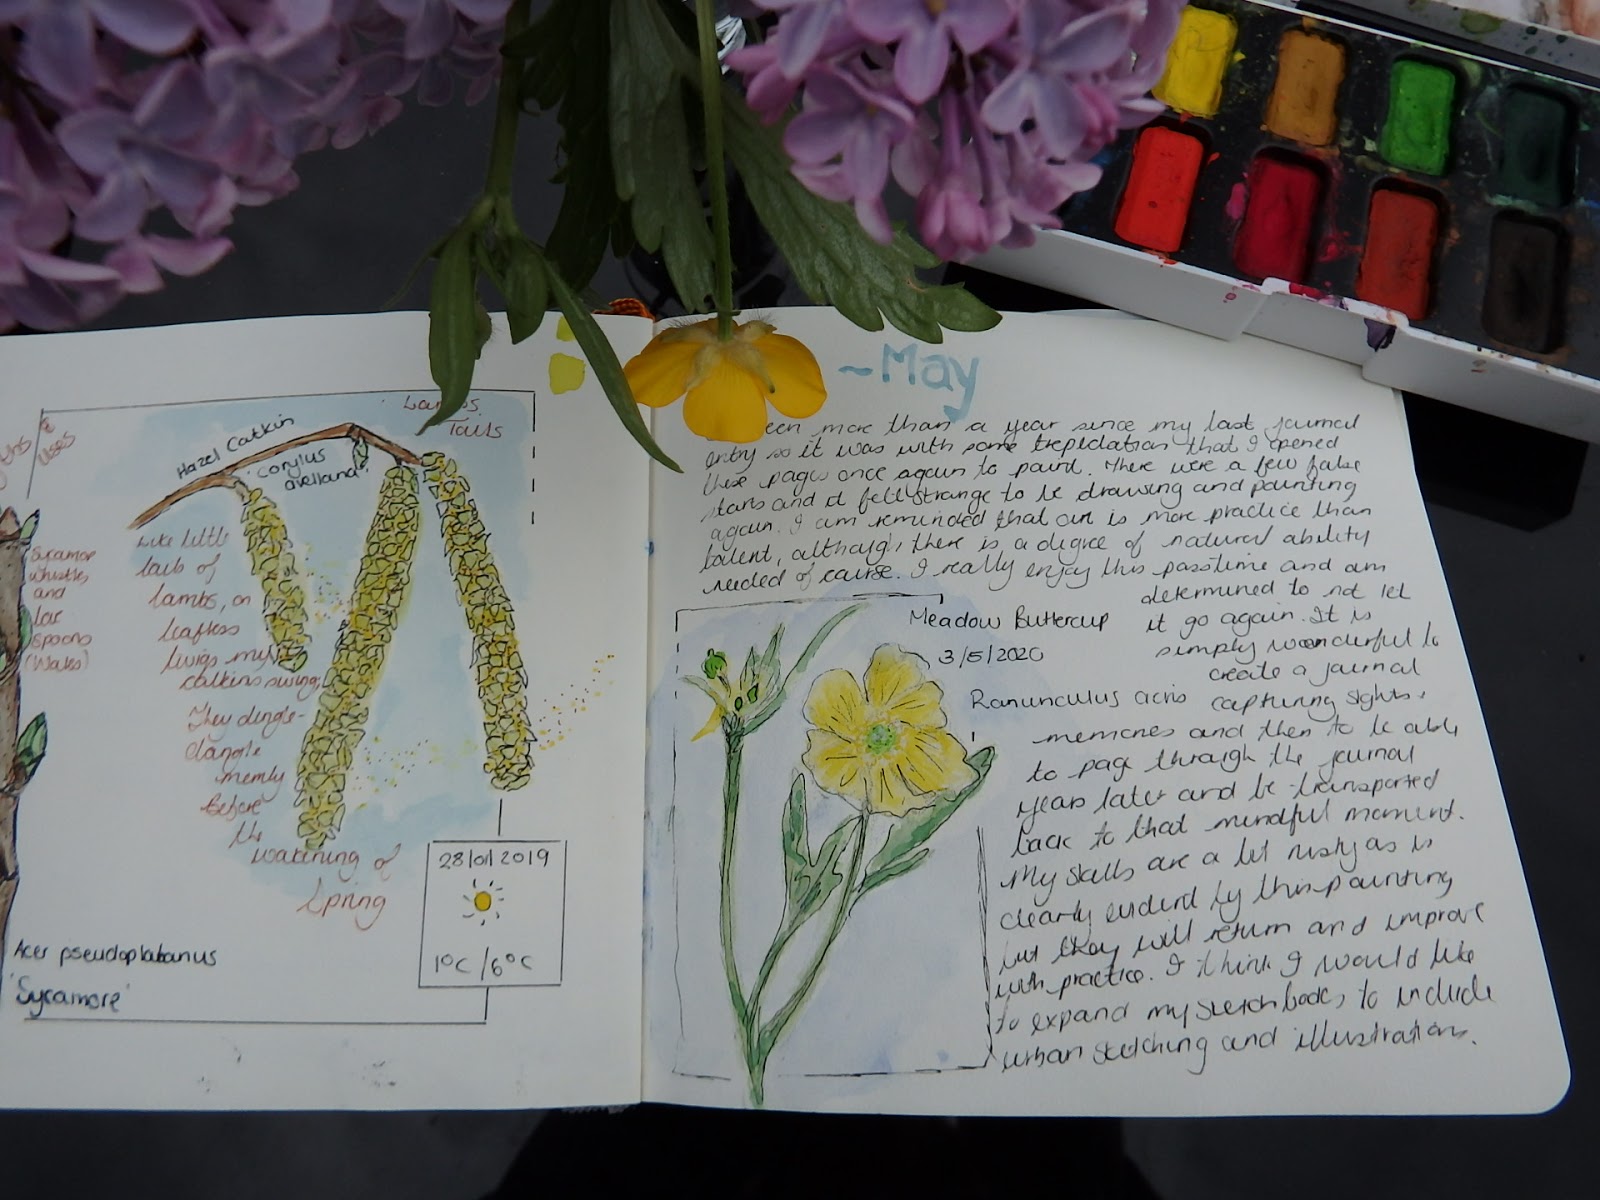 uses
Sycamore
whistles
and
love
spoons
(Wales)
Acer pseudoplatanus
'Sycamore'
Hazel Catkin
'corylus
avellana'
Tails
Like little
tails of
lambs, on
leafless
twigs my
catkins swing;
They dingle-
dangle
merrily
Before
the
wakening of
Spring
28/01/2019
1°C / 6°C
~May
een more than a year since my last journal
entry so it was with some trepidation that I opened
these pages once again to paint. There were a few false
starts and it felt strange to be drawing and painting
again. I am reminded that art is more practice than
talent, although there is a degree of natural ability
needed of course. I really enjoy this passtime and am
determined to not let
it go again. It is
simply wonderful to
create a journal
capturing sights,
memories and then to be able
to page through the journal
years later and be transported
back to that mindful moment.
My skills are a bit rusty as is
clearly evidend by this painting
but they will return and improve
with practice. I think I would like
to expand my sketchbooks to include
urban sketching and illustrations.
Meadow Buttercup
3/5/2020
Ranunculus acris